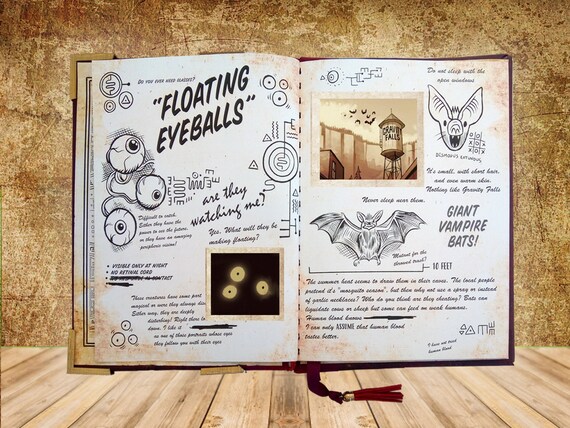 Do you ever need glasses?
"FLOATING
EYEBALLS"
are they
watching me?
Difficult to catch.
Either they have the
power to see the future,
or they have an amazing
peripheral vision!
Yes. What will they be
making floating?
• VISIBLE ONLY AT NIGHT
• NO RETINAL CORD
These creatures have some part
magical or were they always also
Either way, they are deeply
disturbing! Right there is
down. I like it
as one of those portraits whose eyes
they follow you with their eyes
Do not sleep with the
open windows
GRAVITY
FALLS
DESMODUS ROTUNDUS
It's small, with short hair,
and even warm skin.
Nothing like Gravity Falls
Never sleep near them.
GIANT
VAMPIRE
BATS!
10 FEET
The summer heat seems to draw them in their caves. The local people
pretend it's "mosquito season", but then why not use a spray or instead
of garlic necklaces? Who do you think are they cheating? Bats can
liquidate cows or sheep but some can feed on weak humans.
Human blood knows
I can only ASSUME that human blood
tastes better.
I have not tried
human blood